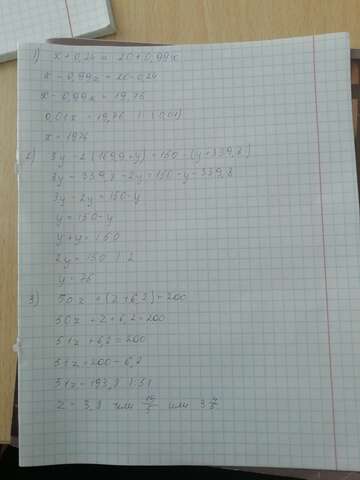 1) x + 0,24 = 20 + 0,99x
x - 0,99x = 20 - 0,24
x - 0,99x = 19,76
0,01x = 19,76 | : 0,01
x = 1976
2) 3y - 2(169,9 + y) = 150 - (y + 339,8)
3y - 339,8 - 2y = 150 - y - 339,8
3y - 2y = 150 - y
y = 150 - y
y + y = 150
2y = 150 | : 2
y = 75
3) 50z + (z + 6,2) = 200
50z + z + 6,2 = 200
51z + 6,2 = 200
51z = 200 - 6,2
51z = 193,8 | : 51
z = 3,8 или 19/5 или 3 4/5